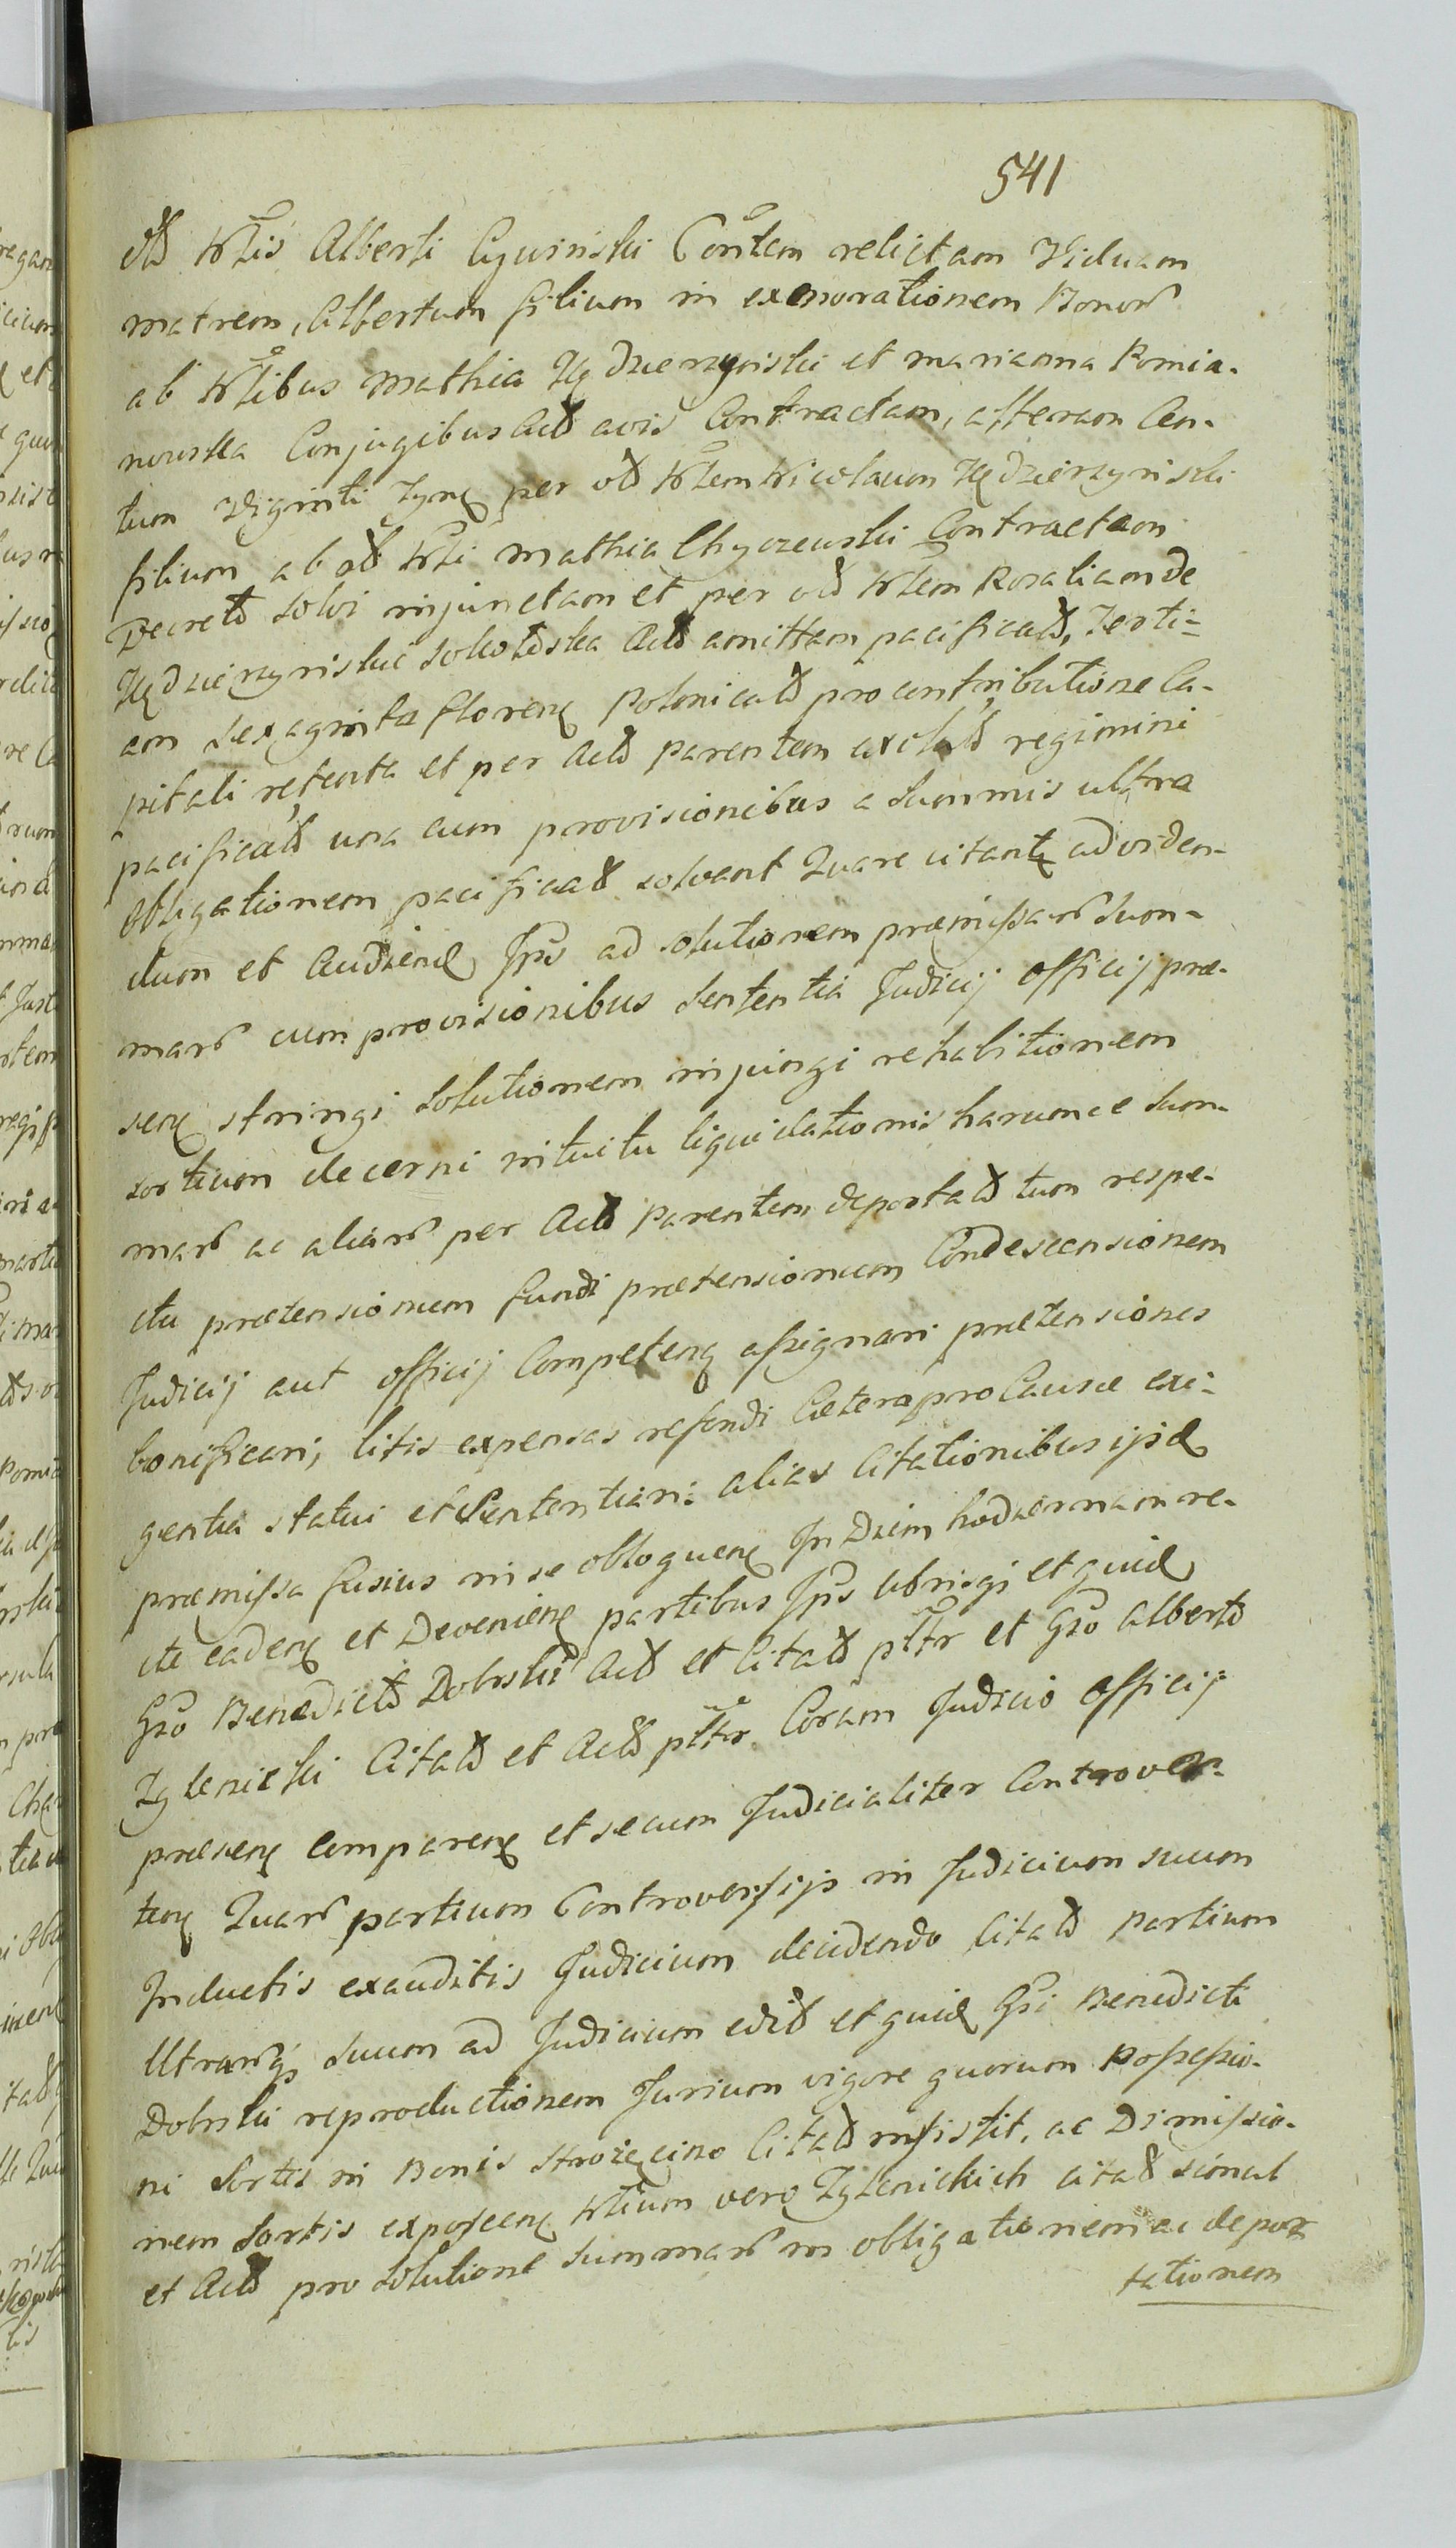 541
olđ Nblis Alberti Cywiński Contem relictam Viduam
matrem, Albertum filium in exonerationem Bonorũ
ab Nblibus Mathia Kędzierzyński et Marianna Pomia-
nowska Conjugibus Actđ avis Contractam, alteram Cen-
tum Viginti Tynf per olđ Nblem Nicolaum Kędzierzyński
filium ab olđ Nbli Mathia Chyczewski Contractam
Decretđ solvi injunctam et per olđ Nblem Rosaliam de
Kędzierzyńskie Sokołđska Actđ amittam pacificatđ, Terti-
am Sexaginta florenę Polonicalđ pro contributione Ca-
pitali retenta et per Actđ parentem exclusđ regimini
pacificatđ una cum provisionibus a Summis ultra
obligationem pacificatđ solvant Quare citantę ad viden-
dum et Audiendę Ips̃ ad solutionem præmissarũ Sum-
marũ cum provisionibus Sententia Judicij Officij præ-
senę stringi Solutionem injungi rehabitionem
sortium decerni intuitu liquidationis harumce Sum-
marũ ac aliarũ per Actđ Parentem deportatđ tum respe-
ctu prætensionum fundi prætensionum Condescensionem
Judicij aut Officij Competenę assignari prætensiones
bonificari, litis expensas refundi Cætera pro Causæ exi-
gentia statui et Sententiari: alias Citationibus ipsđ
præmissa fusius in se obloquenę In Diem hodiernam re-
cte cadenę et Devenienę partibus Ips̃ ubrisqj et quidę
Gso Benedictđ Dobrski Actđ et Citatđ pltr et Gso Alberto
Zglenicki Citatđ et Actđ pltr Coram Judicio Officij
præsenę comparenę et secum Judicialiter Controver-
tenę Quarũ partium Controversijs in Judicium suum
Inductis exauditis Judicium decidendo Citatđ Partium
Utrarũqj suum ad Judicium edid et quidę Gsi Benedicti
Dobrski reproductionem Jurium vigore quorum Possessio-
ni Sortis in Bonis Stroięcino Citatđ insistit, ac Dimissio-
nem Sortis exposcenę Nblium vero Zglenickich citatđ simul
et Actđ pro solutione Summarũ in obligationem ac depor-
tationem